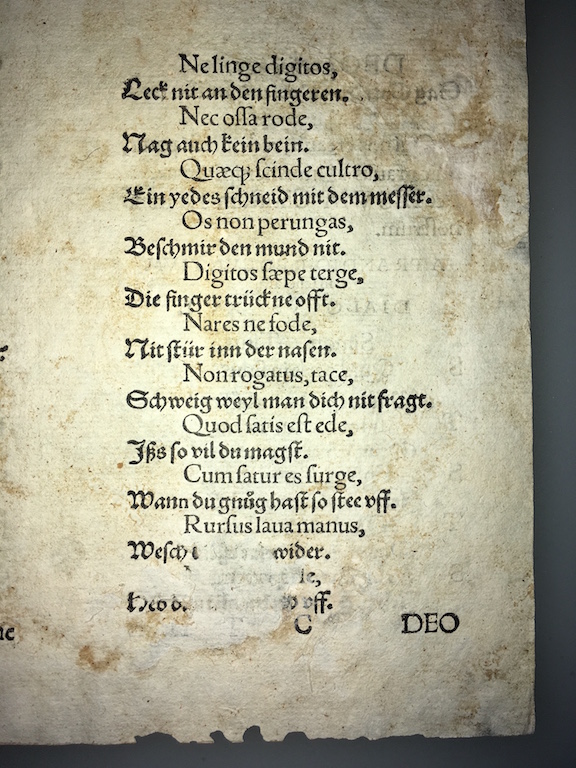 Ne linge digitos,
Leck nit an den fingeren.
Nec ossa rode,
Nag auch kein bein.
Quæq; scinde cultro,
Ein yedes schneid mit dem messer.
Os non perungas,
Beschmir den mund nit.
Digitos sæpe terge,
Die finger trückne offt.
Nares ne fode,
Nit stür inn der nasen.
Non rogatus, tace,
Schweig weyl man dich nit fragt.
Quod satis est ede,
Jßs so vil du magst.
Cum satur es surge,
Wann du gnůg hast so stee vff.
Rursus laua manus,
Wesch wider.
vff.
C DEO